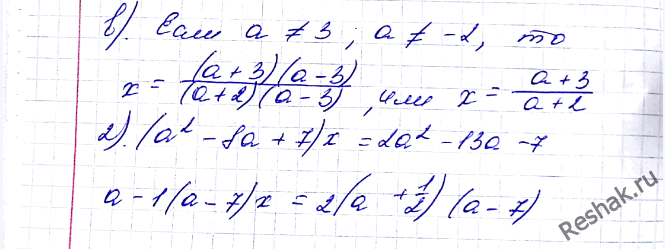 в). Если a ≠ 3 ; a ≠ -2, то
x = (a + 3)(a - 3) / (a + 2)(a - 3), или x = a + 3 / a + 2
2). (a² - 8a + 7)x = 2a² - 13a - 7
a - 1(a - 7)x = 2(a + 1/2)(a - 7)
Reshak.ru